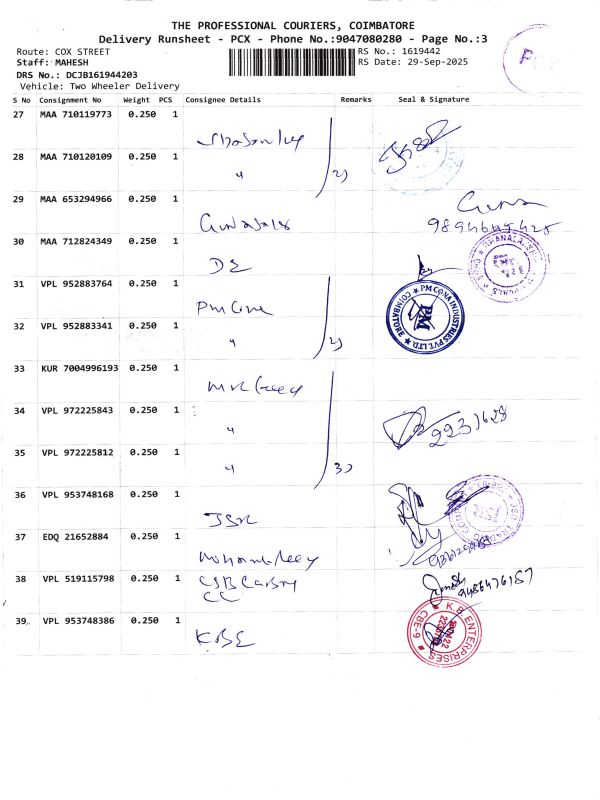 THE PROFESSIONAL COURIERS, COIMBATORE
Delivery Runsheet - PCX - Phone No.:9047080280 - Page No.:3
Route: COX STREET
RS No.: 1619442
Staff: MAHESH
RS Date: 29-Sep-2025
DRS No.: DCJB161944203
Vehicle: Two Wheeler Delivery
S No Consignment No Weight PCS Consignee Details Remarks Seal & Signature
27 MAA 710119773 0.250 1
28 MAA 710120109 0.250 1 " 2)
29 MAA 653294966 0.250 1
30 MAA 712824349 0.250 1 DE
31 VPL 952883764 0.250 1 PM Cona
COIMBATORE ★ PM CONA INDUSTRIES PVT.LTD. ★
PM
32 VPL 952883341 0.250 1 " 2)
33 KUR 7004996193 0.250 1
34 VPL 972225843 0.250 1 "
35 VPL 972225812 0.250 1 " 3)
36 VPL 953748168 0.250 1
37 EDQ 21652884 0.250 1
38 VPL 519115798 0.250 1 CSB
CC
9486476187
39 VPL 953748386 0.250 1 KBE
K. B. ENTERPRISES
CBE-9